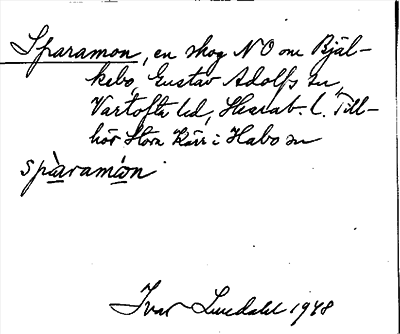 Sparamon, en skog NO om Bjäl-
kebo, Gustav Adolfs sn,
Vartofta hd, Skarab. l. Till-
hör Stora Kärr i Habo sn
spàramòn
Ivar Lundahl 1948